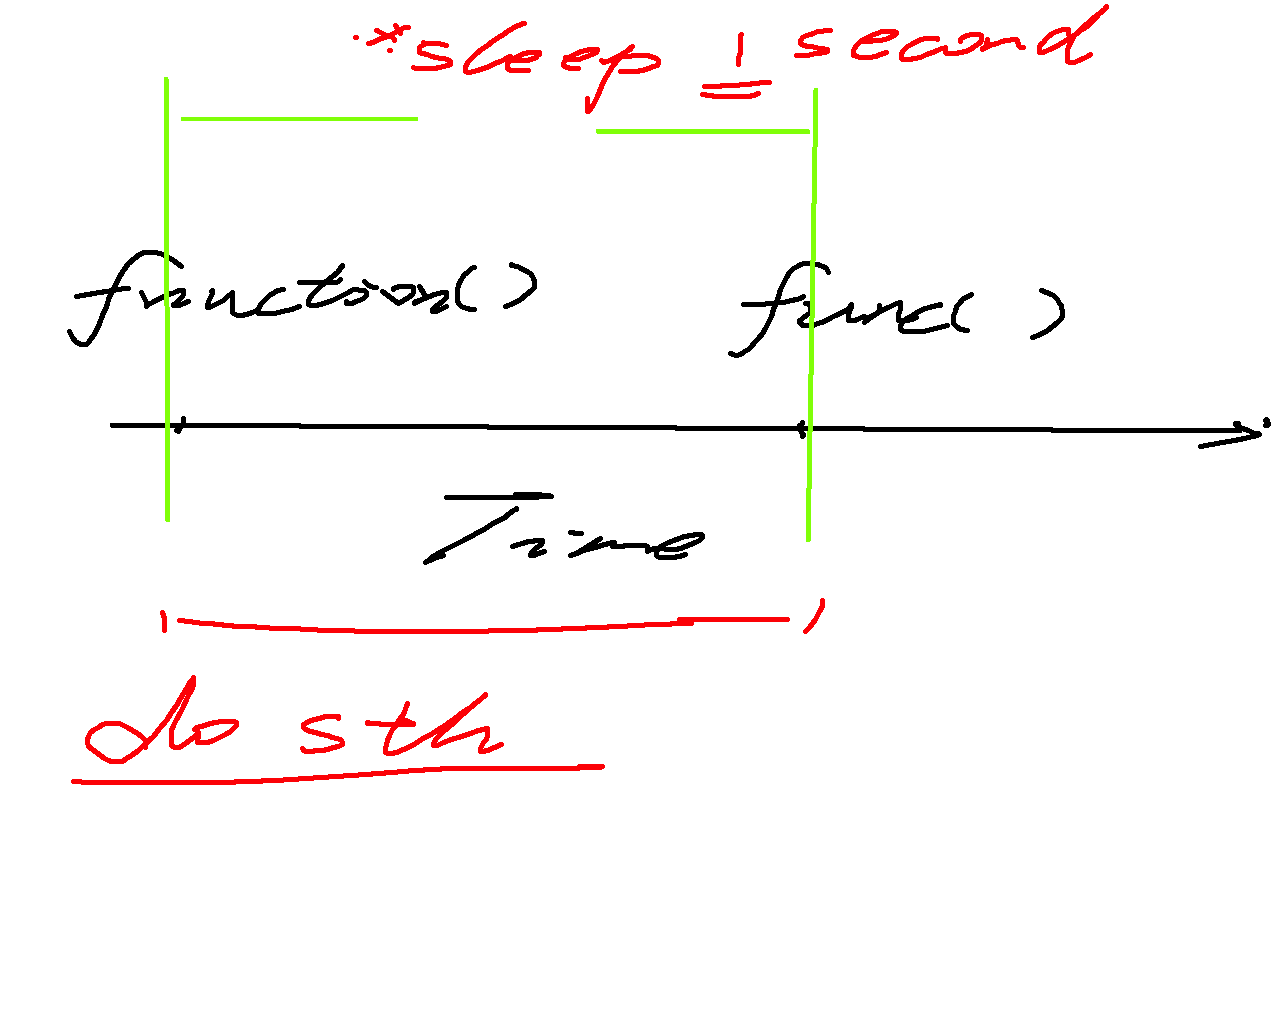 *sleep 1 second
function() func()
Time
do sth